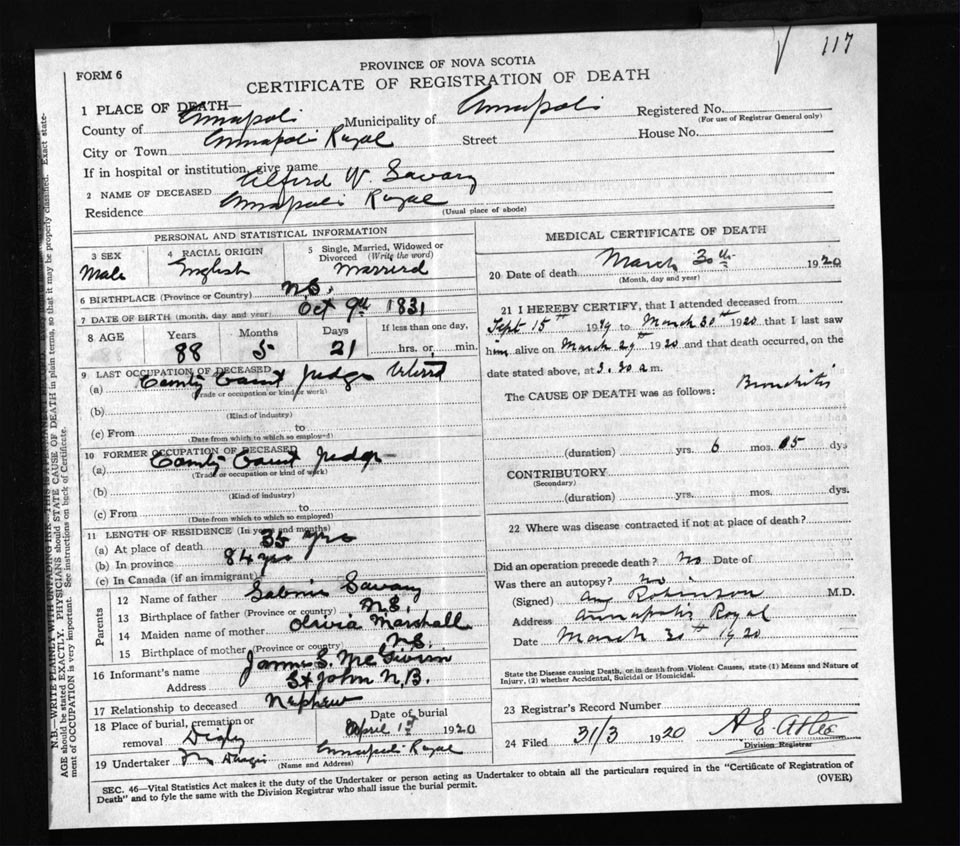 117
FORM 6
PROVINCE OF NOVA SCOTIA
CERTIFICATE OF REGISTRATION OF DEATH
1 PLACE OF DEATH—
County of Annapolis Municipality of Annapolis Registered No.
(For use of Registrar General only)
City or Town Annapolis Royal Street House No.
If in hospital or institution, give name
2 NAME OF DECEASED Alfred W. Savary
Residence Annapolis Royal
(Usual place of abode)
PERSONAL AND STATISTICAL INFORMATION
3 SEX Male
4 RACIAL ORIGIN English
5 Single, Married, Widowed or Divorced (Write the word) Married
6 BIRTHPLACE (Province or Country) N.S.
7 DATE OF BIRTH (month, day and year) Oct 9th 1831
8 AGE Years 88 Months 5 Days 21 If less than one day, hrs. or min.
9 LAST OCCUPATION OF DECEASED
(a) County Court Judge
(Trade or occupation or kind of work)
(b)
(Kind of industry)
(c) From to
(Date from which to which so employed)
10 FORMER OCCUPATION OF DECEASED
(a) County Court Judge
(Trade or occupation or kind of work)
(b)
(Kind of industry)
(c) From to
(Date from which to which so employed)
11 LENGTH OF RESIDENCE (In years and months)
(a) At place of death 35 yrs
(b) In province 84 yrs
(c) In Canada (if an immigrant)
Parents
12 Name of father Sabine Savary
13 Birthplace of father (Province or country) N.S.
14 Maiden name of mother Olivia Marshall
15 Birthplace of mother (Province or country) N.S.
16 Informant's name James S. McGivern
Address St John N.B.
17 Relationship to deceased Nephew
18 Place of burial, cremation or removal Digby
Date of burial April 1st 1920
19 Undertaker Annapolis Royal
(Name and Address)
MEDICAL CERTIFICATE OF DEATH
20 Date of death March 30th 1920
(Month, day and year)
21 I HEREBY CERTIFY, that I attended deceased from
Sept 15th 1919 to March 30th 1920 that I last saw
him alive on March 29th 1920 and that death occurred, on the
date stated above, at 3.30 a m.
The CAUSE OF DEATH was as follows: Bronchitis
(duration) yrs. 6 mos. 15 dys
CONTRIBUTORY
(Secondary)
(duration) yrs. mos. dys.
22 Where was disease contracted if not at place of death?
Did an operation precede death? No Date of
Was there an autopsy? No
(Signed) Robinson M.D.
Address Annapolis Royal
Date March 30th 1920
State the Disease causing Death, or in death from Violent Causes, state (1) Means and Nature of
Injury, (2) whether Accidental, Suicidal or Homicidal.
23 Registrar's Record Number
24 Filed 31/3 1920 A E Atlee
Division Registrar
SEC. 46—Vital Statistics Act makes it the duty of the Undertaker or person acting as Undertaker to obtain all the particulars required in the "Certificate of Registration of
Death" and to fyle the same with the Division Registrar who shall issue the burial permit.
(OVER)
AGE should be stated EXACTLY. PHYSICIANS should STATE CAUSE OF DEATH in plain terms, so that it may be properly classified. Exact statement of OCCUPATION is very important. See instructions on back of Certificate.